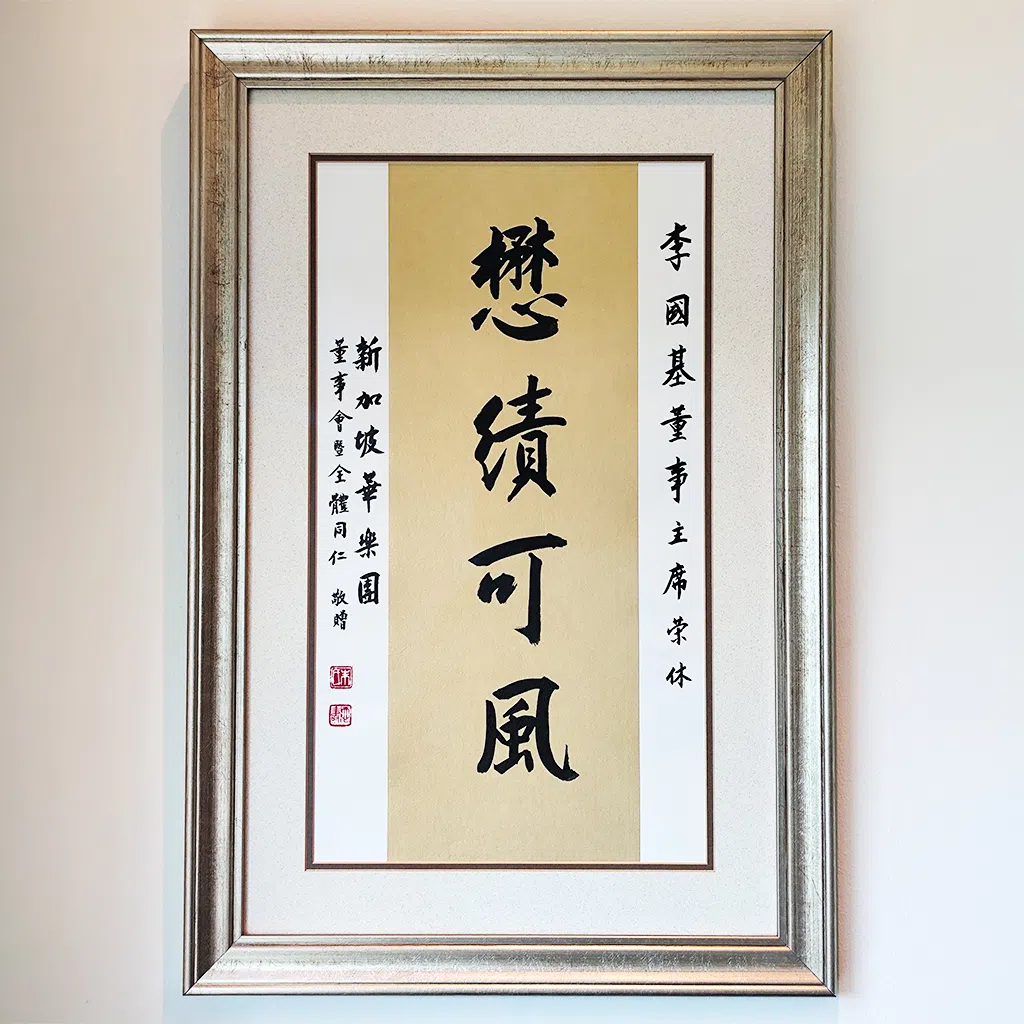 李國基董事主席荣休
懋績可風
新加坡華樂團
董事會暨全體同仁 敬贈